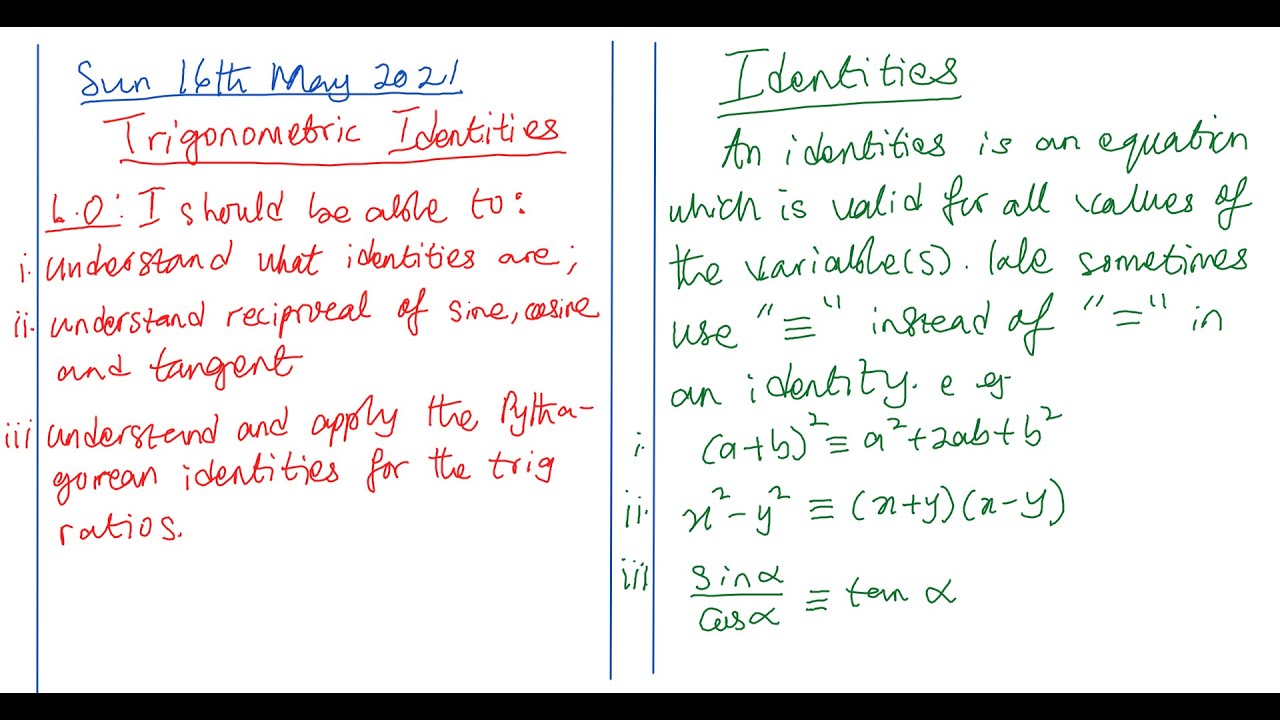 Sun 16th May 2021
Trigonometric Identities
L.O: I should be able to:
i. understand what identities are;
ii. understand reciprocal of sine, cosine
and tangent
iii understand and apply the Pytha-
gorean identities for the trig
ratios.
Identities
An identities is an equation
which is valid for all values of
the variable(s). We sometimes
use "≡" instead of "=" in
an identity. e g
i. (a+b)² ≡ a²+2ab+b²
ii. x²-y² ≡ (x+y)(x-y)
iii sinα/cosα ≡ tan α